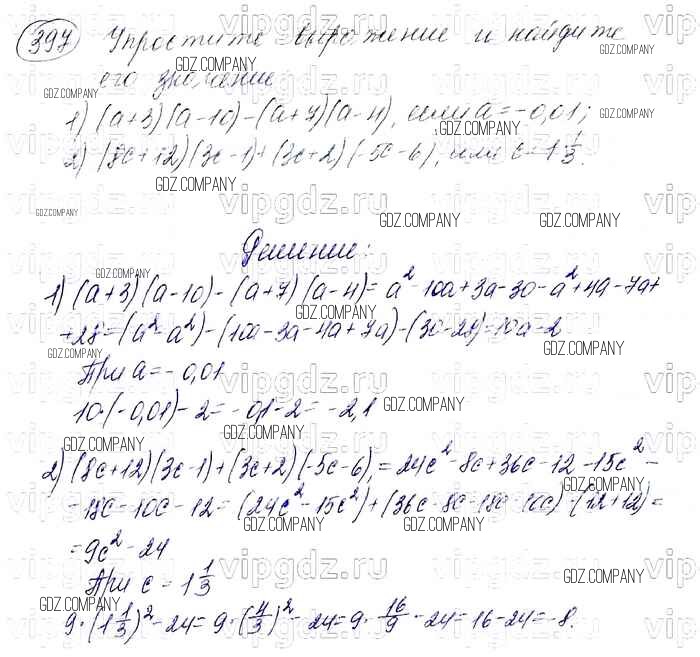 397 Упростите выражение и найдите
его значение
1) (a+3)(a-10)-(a+7)(a-4), если a=-0,01;
2) (8c+12)(3c-1)+(3c+2)(-5c-6), если c=1 1/3.
Решение:
1) (a+3)(a-10)-(a+7)(a-4)=a²-10a+3a-30-a²+4a-7a+
+28=(a²-a²)-(10a-3a-4a+7a)-(30-28)=10a-2
При a=-0,01
10·(-0,01)-2=-0,1-2=-2,1
2) (8c+12)(3c-1)+(3c+2)(-5c-6)=24c²-8c+36c-12-15c²-
-18c-10c-12=(24c²-15c²)+(36c-8c-18c-10c)-(12+12)=
=9c²-24
При c=1 1/3
9·(1 1/3)²-24=9·(4/3)²-24=9·16/9-24=16-24=-8.
GDZ.COMPANY
vipgdz.ru